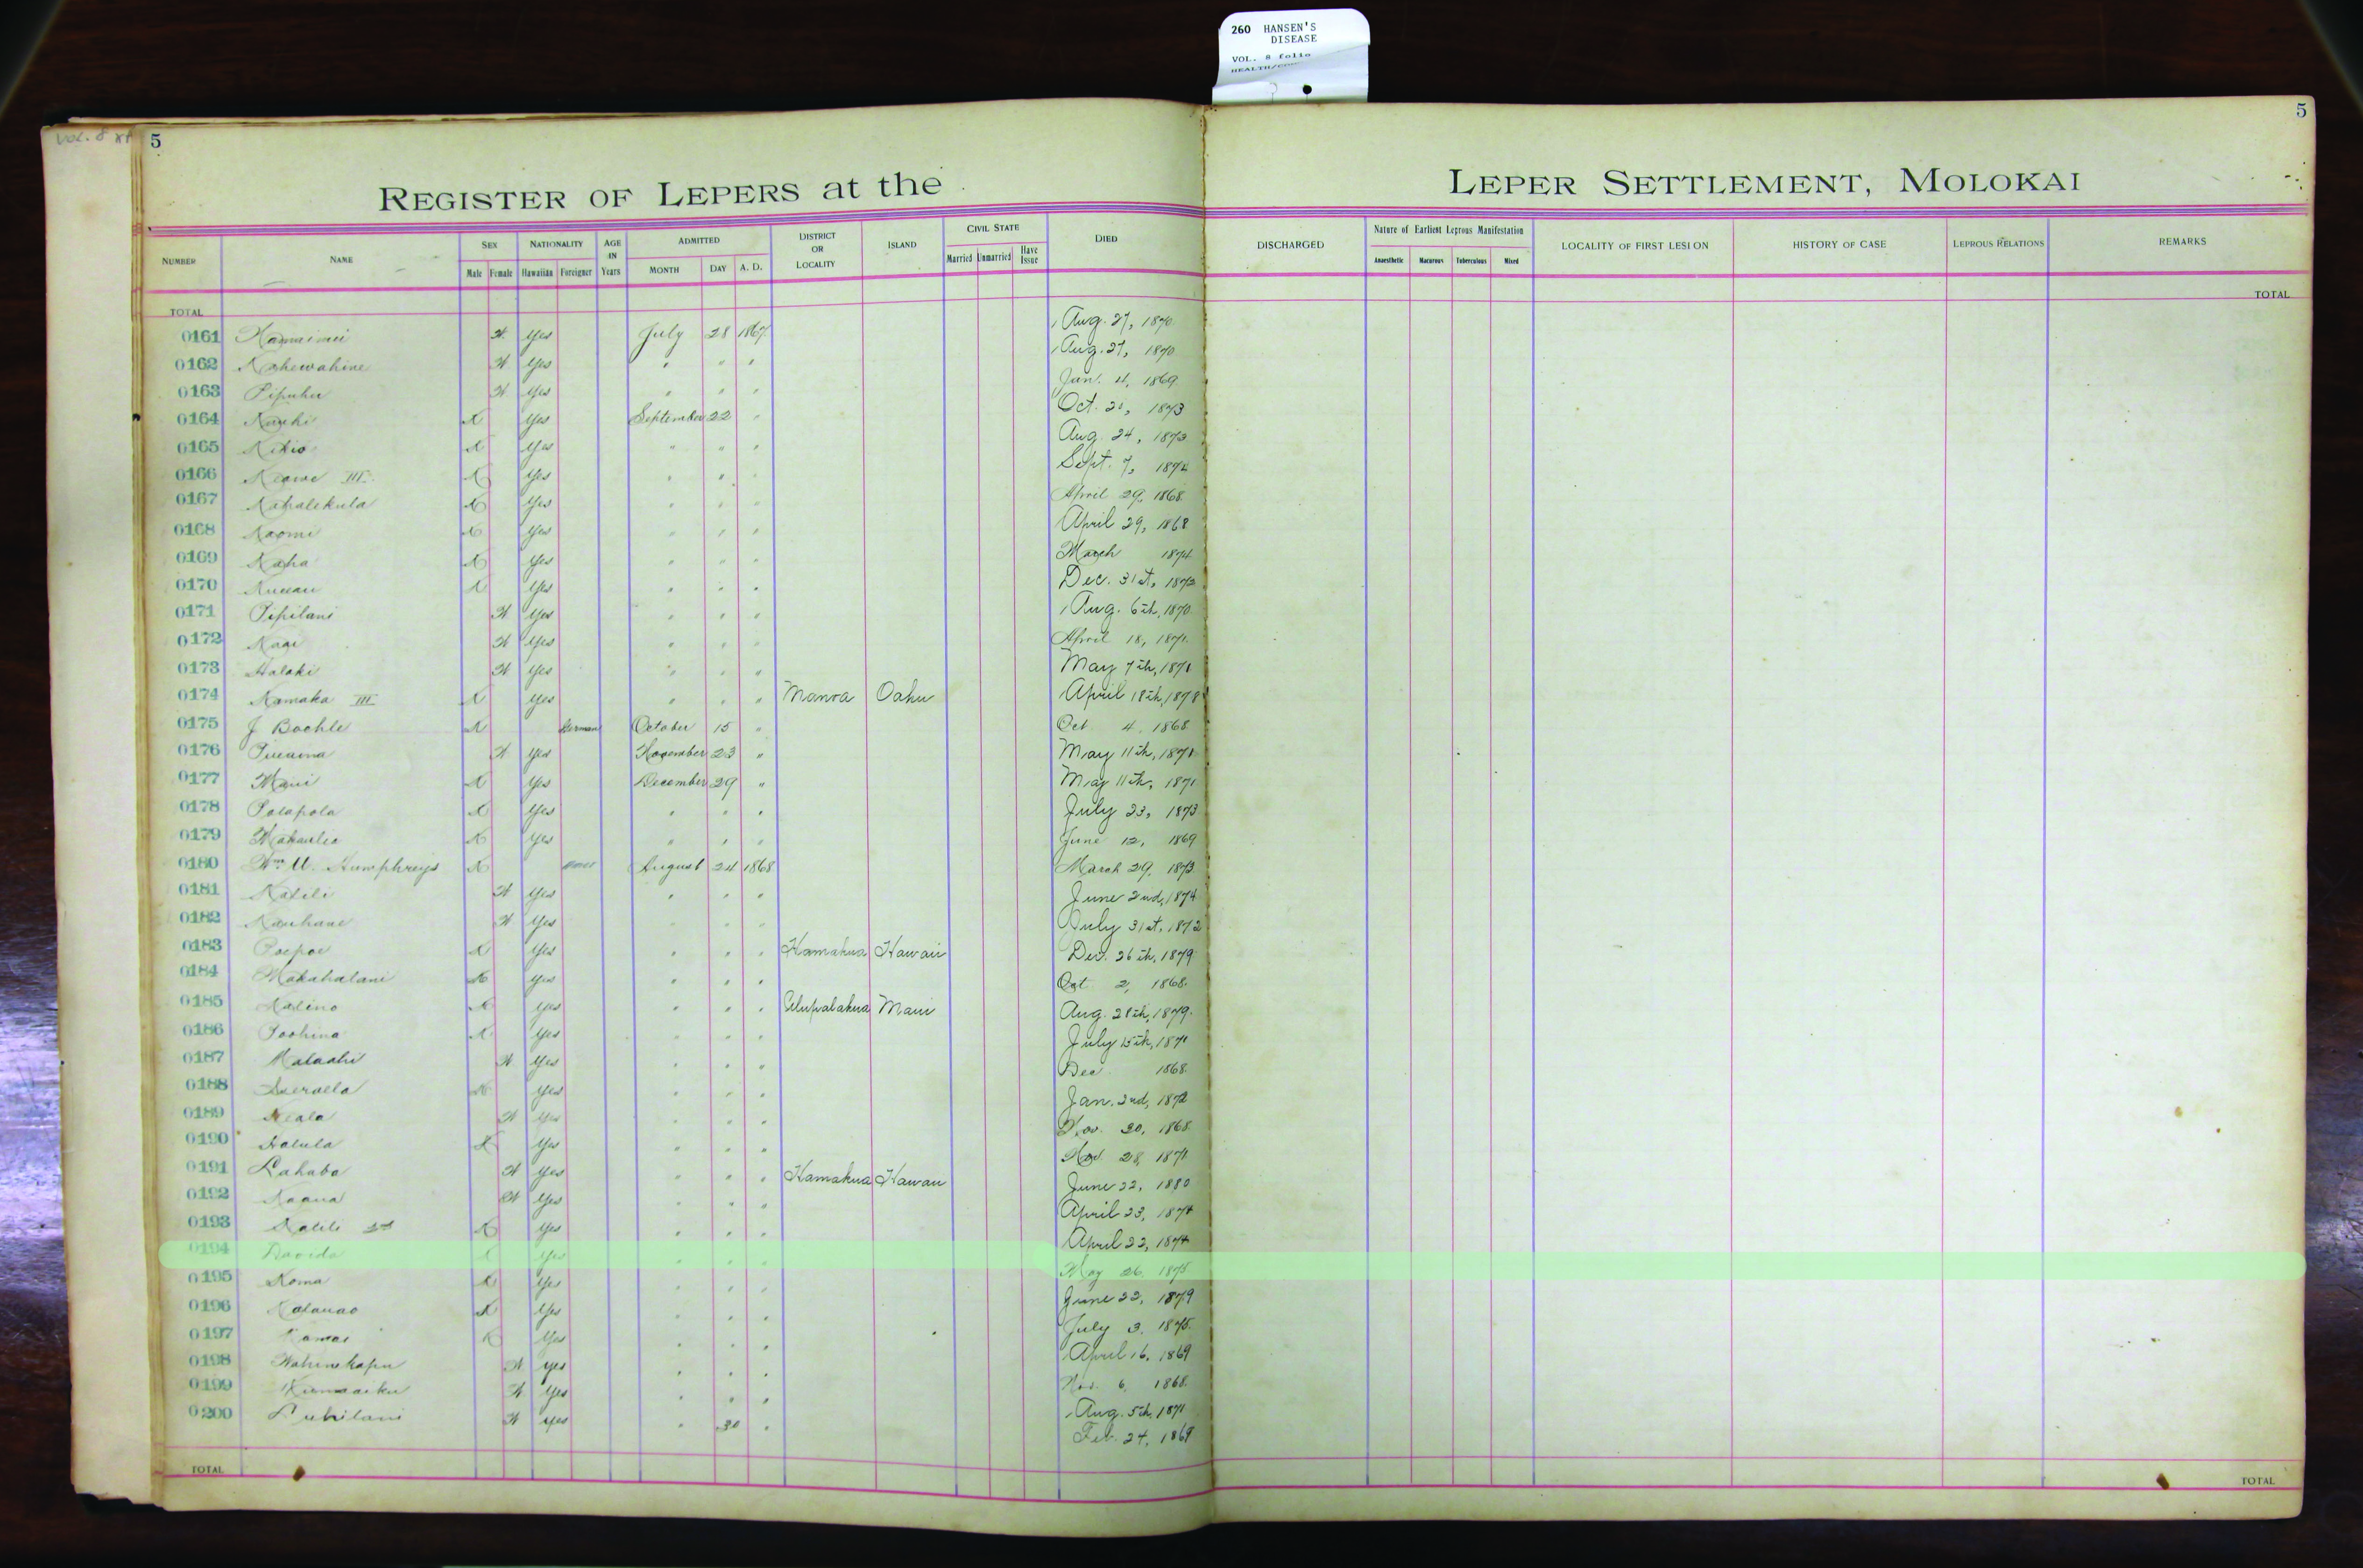 260 HANSEN'S
DISEASE
VOL. 8 folio
Vol. 8
5
5
REGISTER OF LEPERS at the LEPER SETTLEMENT, MOLOKAI
NUMBER NAME SEX NATIONALITY AGE IN Years ADMITTED DISTRICT OR LOCALITY ISLAND CIVIL STATE DIED DISCHARGED Nature of Earliest Leprous Manifestation LOCALITY OF FIRST LESION HISTORY OF CASE LEPROUS RELATIONS REMARKS
Male Female Hawaiian Foreigner MONTH DAY A. D. Married Unmarried Have Issue Anaesthetic Macurous Tuberculous Mixed
TOTAL TOTAL
0161 X Yes July 28 1867 Aug. 27, 1870
0162 Kahewahine X Yes " " " Aug. 27, 1870
0163 Pipuhu X Yes " " " Jan. 4, 1869
0164 X Yes September 22 " Oct. 1873
0165 X Yes " " " Aug. 24,
0166 Keawe III X Yes " " " Sept. 7,
0167 X Yes " " " April 29, 1868
0168 Naomi X Yes " " " April 29, 1868
0169 Kaha X Yes " " " March 1874
0170 X Yes " " " Dec. 31st,
0171 Pipilani X Yes " " " Aug. 6th, 1870
0172 X Yes " " " April 18, 1871
0173 Halaki X Yes " " " May 7th, 1871
0174 Kamaka III X Yes " " " Manoa Oahu April 18th, 1878
0175 J Bochle X German October 15 " Oct 4, 1868
0176 X Yes November 23 " May 11th, 1871
0177 Maui X Yes December 29 " May 11th, 1871
0178 Polapola X Yes " " " July 23, 1873
0179 X Yes " " " June 12, 1869
0180 Wm. Humphreys X August 24 1868 March 29,
0181 Kalili X Yes " " " June 2nd, 1874
0182 Kauhane X Yes " " " July 31st, 1872
0183 Poepoe X Yes " " " Hamakua Hawaii Dec. 26th, 1879
0184 Makahalani X Yes " " " Oct 2, 1868
0185 Kalino X Yes " " " Ulupalakua Maui Aug. 28th, 1879
0186 Poohina X Yes " " " July 15th, 1871
0187 X Yes " " " Dec 1868
0188 X Yes " " " Jan. 2nd, 1872
0189 X Yes " " " Nov. 30, 1868
0190 Halula X Yes " " " Nov. 28, 1871
0191 X Yes " " " Hamakua Hawaii June 22, 1880
0192 Kaaua X Yes " " " April 23, 1874
0193 Kalili 2nd X Yes " " " April 22, 1874
0194 X Yes " " " May 26, 1875
0195 Koma X Yes " " " June 22, 1879
0196 X Yes " " " July 3, 1875
0197 Kamai X Yes " " " April 16, 1869
0198 Wahinekapu X Yes " " " Nov. 6, 1868
0199 X Yes " " " Aug. 5th, 1871
0200 X Yes " 30 " Feb. 24, 1869
TOTAL TOTAL